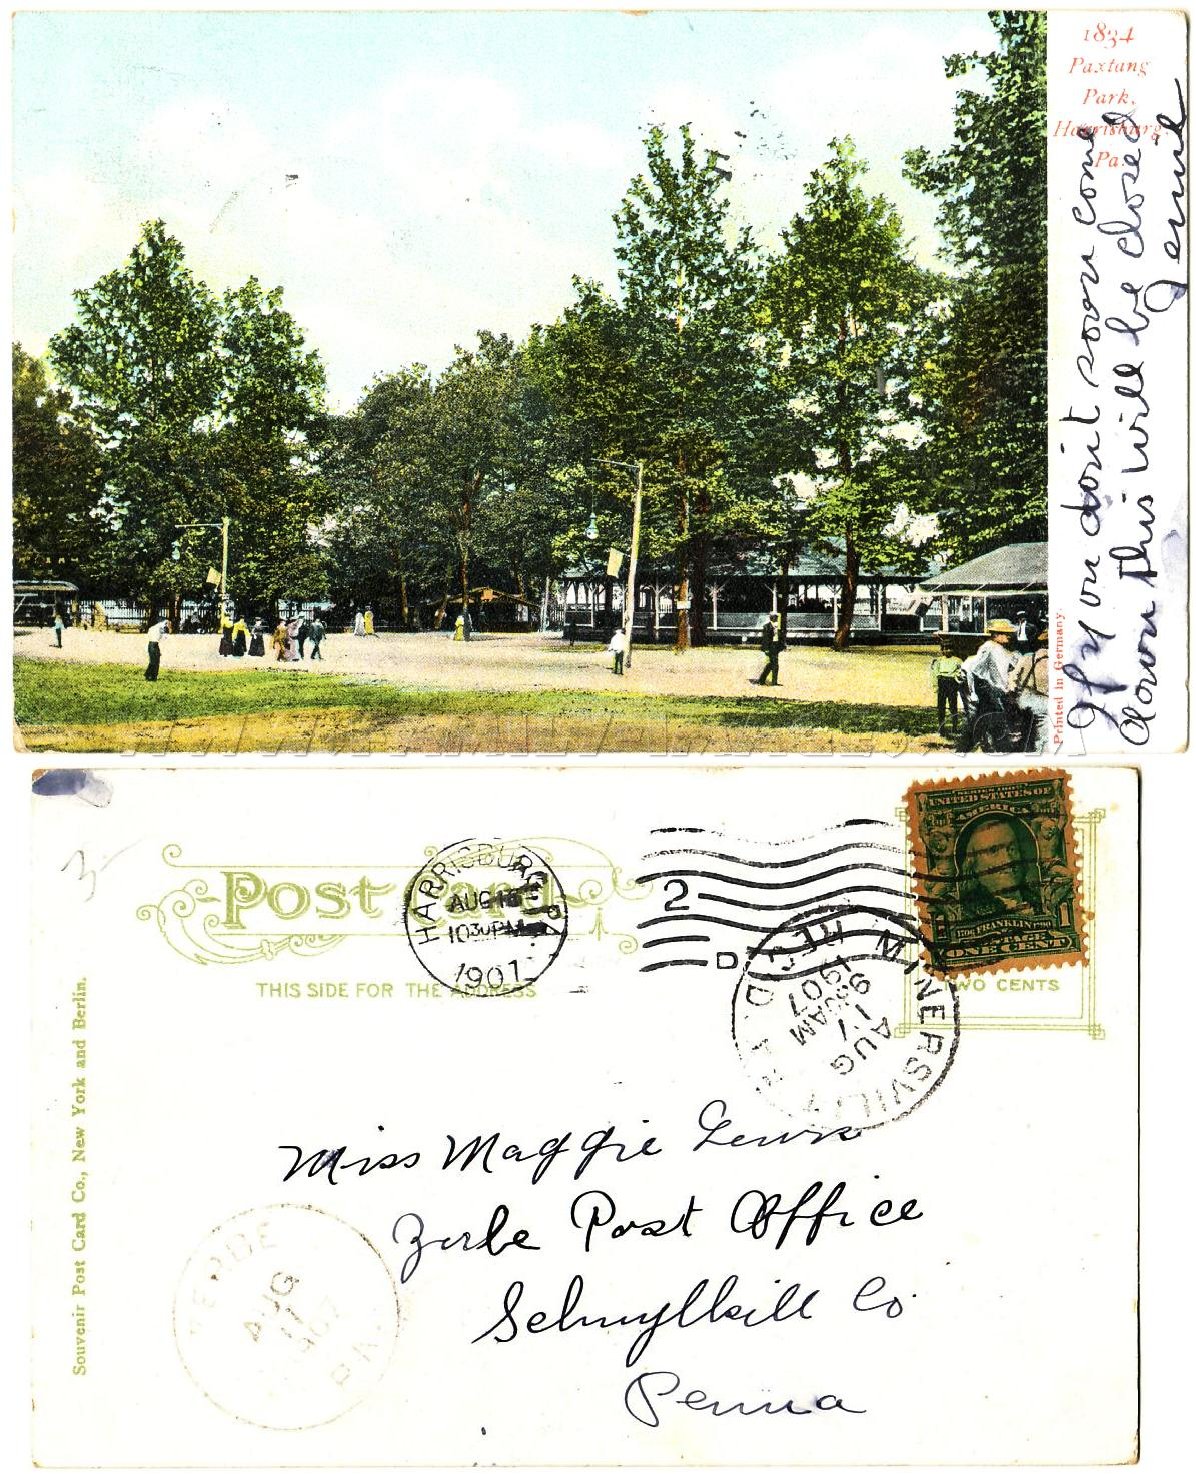 1834
Paxtang
Park,
Harrisburg,
Pa
Printed in Germany
If you don't soon come
down this will be closed
Jennie
Post Card
THIS SIDE FOR THE ADDRESS
HARRISBURG, PA.
AUG 16
1030 PM
1907
2
D
SERIES 1902
UNITED STATES OF
AMERICA
FRANKLIN
POSTAGE
1
ONE CENT
TWO CENTS
MINERSVILLE
REC'D
AUG
17
9 AM
1907
Souvenir Post Card Co., New York and Berlin.
Miss Maggie Lewis
Zerbe Post Office
Schuylkill Co.
Penna
ZERBE
AUG
17
1907
PA
3